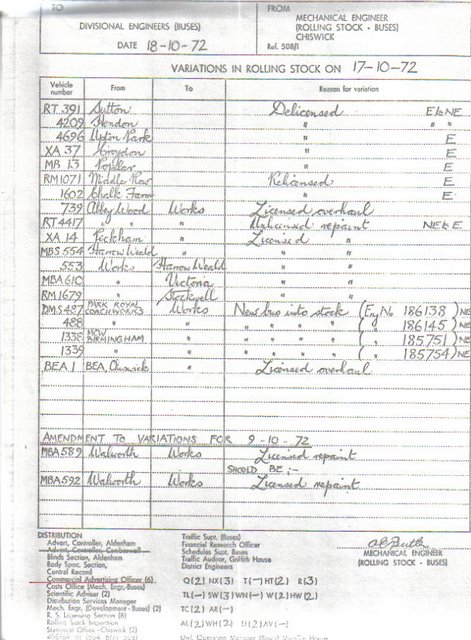 TO
DIVISIONAL ENGINEERS (BUSES)
DATE 18-10-72
FROM
MECHANICAL ENGINEER
(ROLLING STOCK - BUSES)
CHISWICK
Ref. 508/1
VARIATIONS IN ROLLING STOCK ON 17-10-72
Vehicle number From To Reason for variation
RT 391 Sutton Delicensed E to NE
4209 Hendon " " "
4696 Upton Park " E
XA 37 Croydon " E
MB 13 Poplar " E
RM 1071 Middle Row Relicensed E
1602 Chalk Farm " E
739 Abbey Wood Works Licensed overhaul
RT 4417 " " " Unlicensed repaint NE to E
XA 14 Peckham " Licensed "
MBS 554 Harrow Weald " " "
553 Works Harrow Weald " "
MBA 610 " Victoria " "
RM 1679 " Stockwell " "
DMS 487 PARK ROYAL COACHWORKS Works New bus into stock (Eng No 186138) NE
488 " " " " " " ( " 186145) NE
1338 MCW BIRMINGHAM " " " " " ( " 185751) NE
1339 " " " " " " ( " 185754) NE
BEA 1 BEA, Chiswick " Licensed overhaul
AMENDMENT TO VARIATIONS FOR 9-10-72
MBA 589 Walworth Works Licensed repaint
SHOULD BE :-
MBA 592 Walworth Works Licensed repaint
DISTRIBUTION
Advert. Controller, Aldenham
Advert. Controller, Camberwell
Blinds Section, Aldenham
Body Spec. Section,
Central Record
Commercial Advertising Officer (6)
Costs Office (Mech. Engr. Buses)
Scientific Adviser (2)
Distribution Services Manager
Mech. Engr. (Development - Buses) (2)
R. S. Licensing Section (8)
Rolling Stock Inspection
Statistical Office - Chiswick (2)
Traffic Supt. (Buses)
Financial Research Officer
Schedules Supt. Buses
Traffic Auditor, Griffith House
District Engineers
Q(2) NX(3) T(-) HT(2) R(3)
TL(-) SW(3) WN(-) W(2) HW(2)
TC(2) AR(-)
AL(2) WH(2) U(2) AV(-)
MECHANICAL ENGINEER
(ROLLING STOCK - BUSES)